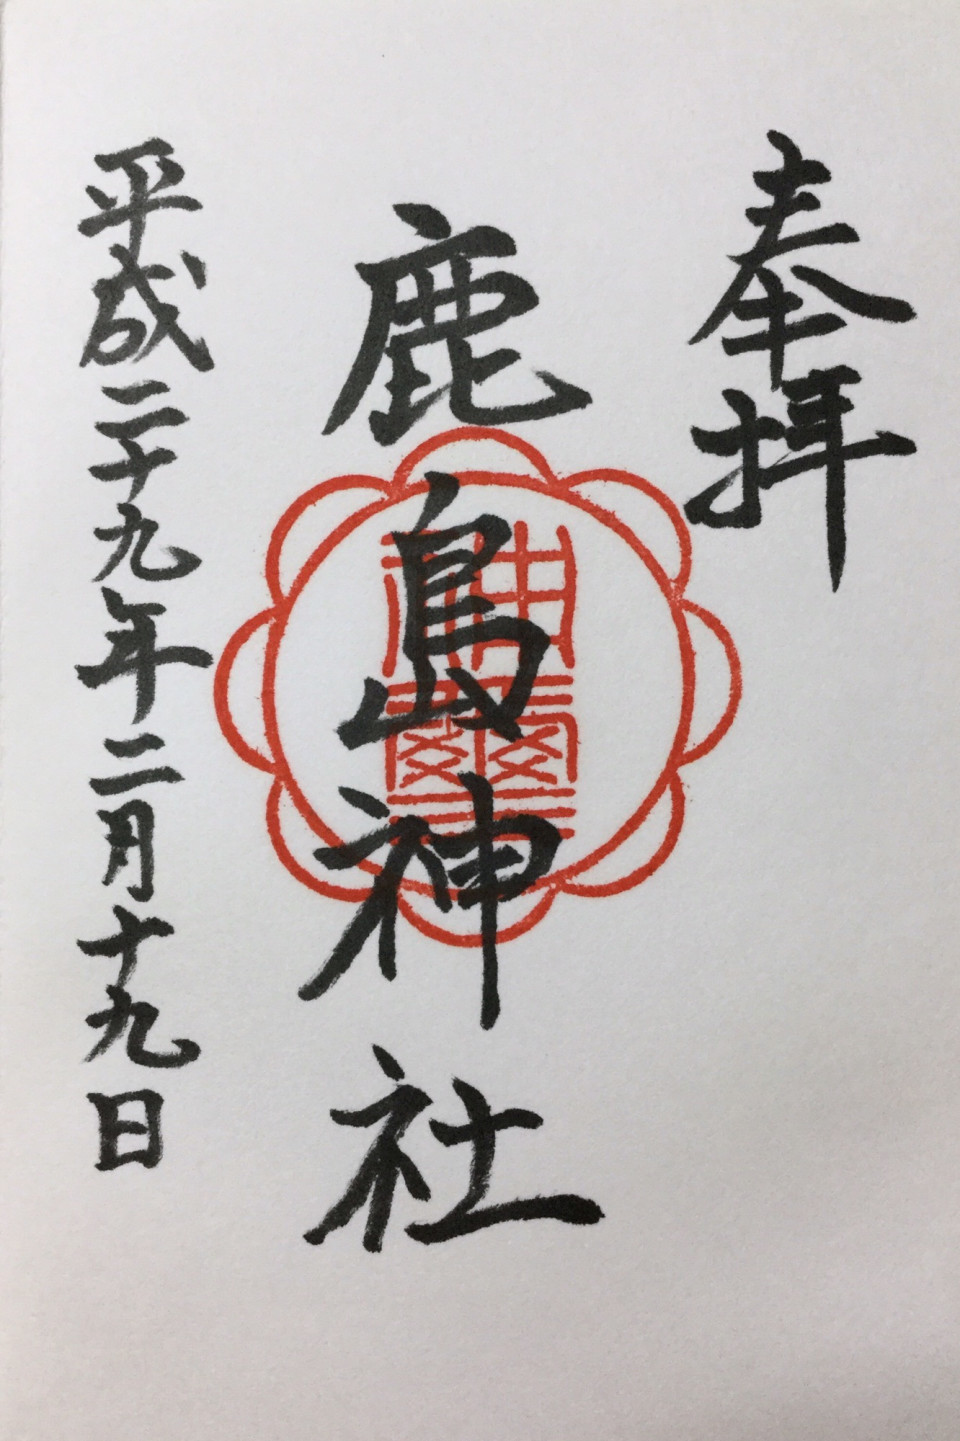 奉拝
鹿島神社
平成二十九年二月十九日